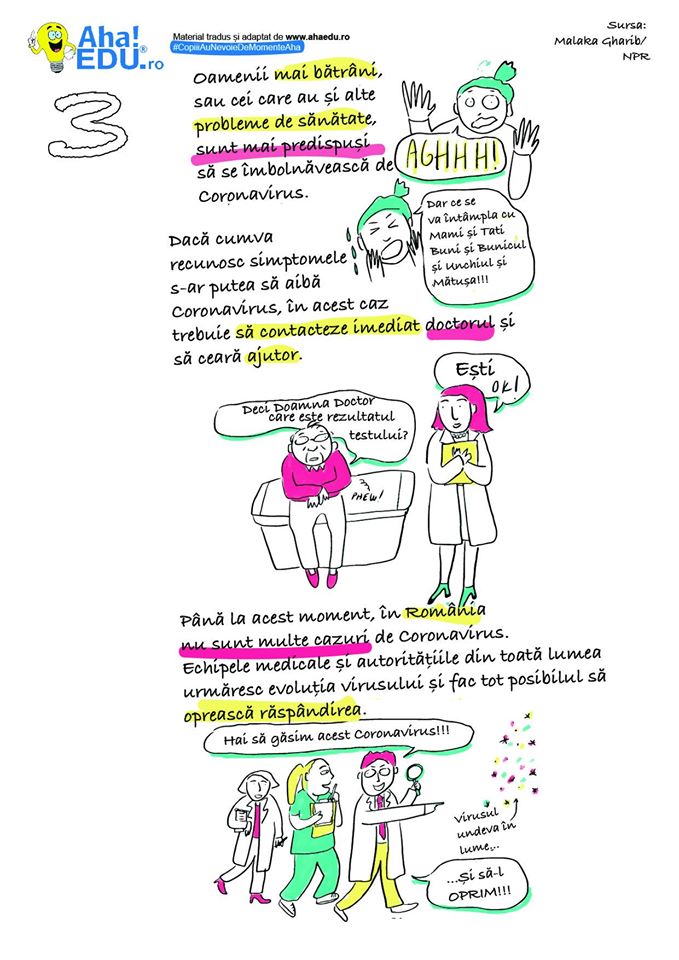 Aha!
EDU.ro
Material tradus și adaptat de www.ahaedu.ro
#CopiiiAuNevoieDeMomenteAha
Sursa:
Malaka Gharib/
NPR
3
Oamenii mai bătrâni,
sau cei care au și alte
probleme de sănătate,
sunt mai predispuși
să se îmbolnăvească de
Coronavirus.
AGHHH!
Dar ce se
va întâmpla cu
Mami și Tati
Buni și Bunicul
și Unchiul și
Mătușa!!!
Dacă cumva
recunosc simptomele
s-ar putea să aibă
Coronavirus, în acest caz
trebuie să contacteze imediat doctorul și
să ceară ajutor.
Ești
OK!
Deci Doamna Doctor
care este rezultatul
testului?
PHEW!
Până la acest moment, în România
nu sunt multe cazuri de Coronavirus.
Echipele medicale și autoritățiile din toată lumea
urmăresc evoluția virusului și fac tot posibilul să
oprească răspândirea.
Hai să găsim acest Coronavirus!!!
Virusul
undeva în
lume...
...Și să-l
OPRIM!!!